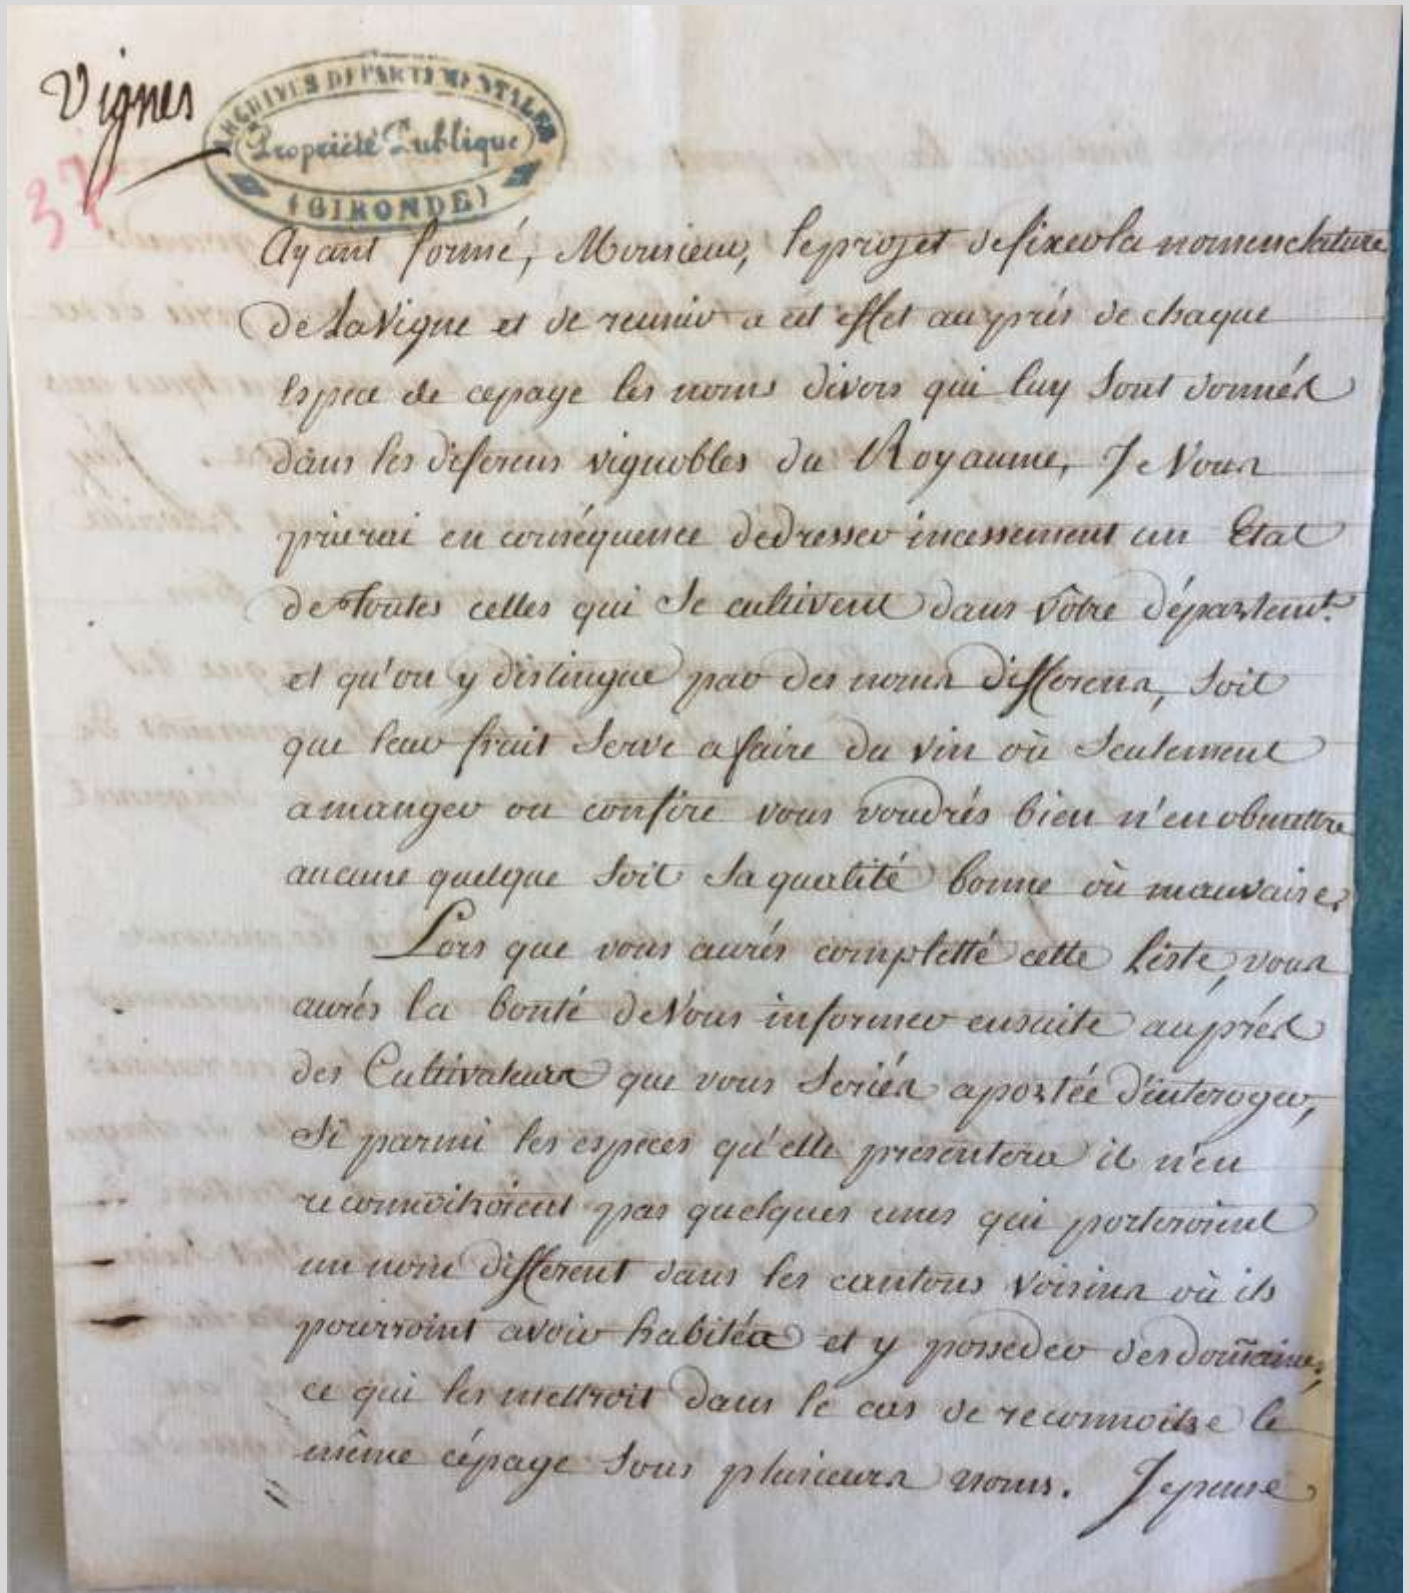 Vignes
ARCHIVES DÉPARTEMENTALES
Propriété Publique
(GIRONDE)
37
Ayant formé, Monsieur, le projet de fixer la nomenclature
de la Vigne et de reunir a cet effet auprés de chaque
espece de cepage les noms divers qui luy sont donnés
dans les diferens vignobles du Royaume, Je Vous
prierai en conséquence de dresser incessement un Etat
de toutes celles qui se cultivent dans vôtre départemt.
et qu'on y distingue par des noms differens, soit
que leur fruit serve a faire du vin où seulement
a manger ou confire vous voudrés bien n'en obmettre
aucune quelque soit sa qualité bonne où mauvaise.
Lors que vous aurés completté cette Liste, vous
aurés la bonté de Vous informer ensuite auprés
des Cultivateurs que vous seriés a portée d'interoger,
si parmi les especes qu'elle presentera il n'en
reconnoitroient pas quelques unes qui porteroient
un nom different dans les cantons voisins où ils
pourroint avoir habités et y posseder des domaines,
ce qui les mettroit dans le cas de reconnoitre le
même cépage sous plusieurs noms. Je pense